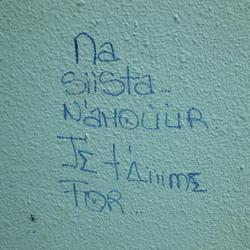 Na
Siista...
N'AMOUUR.
JE t'Aiiime
FOR...